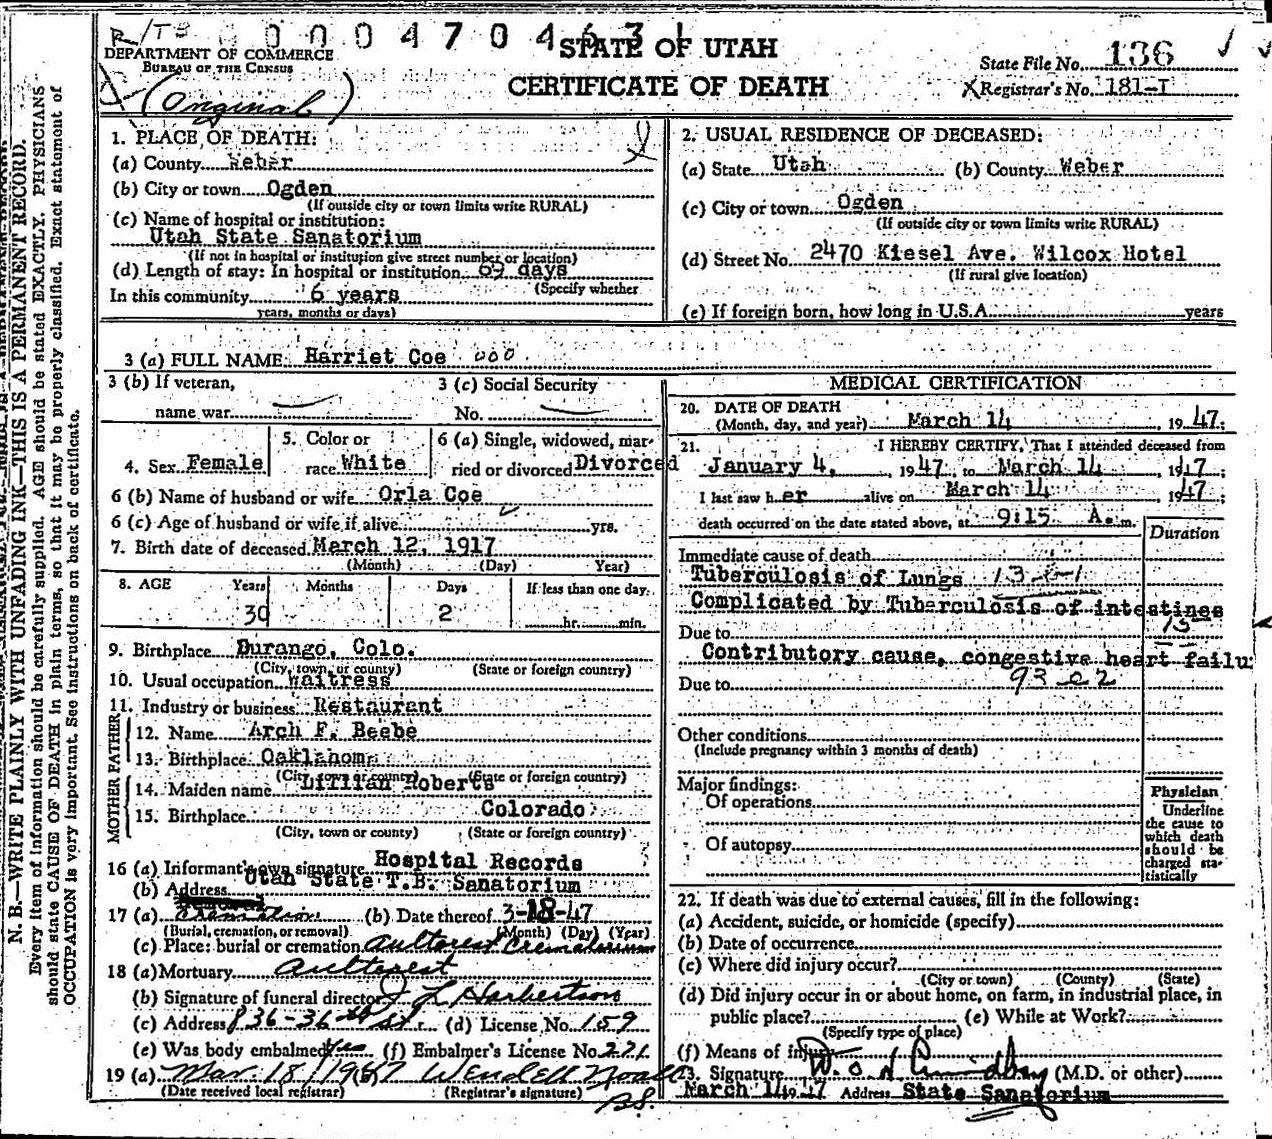 R/TB 000470463
STATE OF UTAH
DEPARTMENT OF COMMERCE
BUREAU OF THE CENSUS
CERTIFICATE OF DEATH
State File No. 136
Registrar's No. 181-I
(Original)
1. PLACE OF DEATH:
(a) County Weber
(b) City or town Ogden
(If outside city or town limits write RURAL)
(c) Name of hospital or institution:
Utah State Sanatorium
(If not in hospital or institution give street number or location)
(d) Length of stay: In hospital or institution 69 days
(Specify whether
In this community 6 years
years, months or days)
2. USUAL RESIDENCE OF DECEASED:
(a) State Utah (b) County Weber
(c) City or town Ogden
(If outside city or town limits write RURAL)
(d) Street No. 2470 Kiesel Ave. Wilcox Hotel
(If rural give location)
(e) If foreign born, how long in U.S.A. years
3 (a) FULL NAME: Harriet Coe 000
3 (b) If veteran,
name war
3 (c) Social Security
No.
4. Sex Female
5. Color or
race White
6 (a) Single, widowed, mar-
ried or divorced Divorced
6 (b) Name of husband or wife Orla Coe
6 (c) Age of husband or wife if alive yrs.
7. Birth date of deceased March 12, 1917
(Month) (Day) Year)
8. AGE Years Months Days If less than one day
30 2 hr. min.
9. Birthplace Durango, Colo.
(City, town, or county) (State or foreign country)
10. Usual occupation Waitress
11. Industry or business Restaurant
FATHER
12. Name Arch F. Beebe
13. Birthplace Oaklahoma
(City, town or county) (State or foreign country)
MOTHER
14. Maiden name Lillian Roberts
15. Birthplace Colorado
(City, town or county) (State or foreign country)
16 (a) Informant's own signature Hospital Records
(b) Address Utah State T.B. Sanatorium
17 (a) Cremation (b) Date thereof 3-18-47
(Burial, cremation, or removal) (Month) (Day) (Year)
(c) Place: burial or cremation Aultorest Crematorium
18 (a) Mortuary Aultorest
(b) Signature of funeral director J L Harbertson
(c) Address 836-36th St. (d) License No. 159
(e) Was body embalmed Yes (f) Embalmer's License No. 221
19 (a) Mar. 18/1947 Wendell Noall
(Date received local registrar) (Registrar's signature)
BS.
MEDICAL CERTIFICATION
20. DATE OF DEATH
(Month, day, and year) March 14, 1947;
21. I HEREBY CERTIFY, That I attended deceased from
January 4, 1947, to March 14, 1947;
I last saw her alive on March 14 1947;
death occurred on the date stated above, at 9:15 A. m.
Duration
Immediate cause of death
Tuberculosis of Lungs
Complicated by Tuberculosis of intestines
Due to
Contributory cause, congestive heart failu
Due to
Other conditions
(Include pregnancy within 3 months of death)
Major findings:
Of operations
Of autopsy
Physician
Underline
the cause to
which death
should be
charged sta-
tistically
22. If death was due to external causes, fill in the following:
(a) Accident, suicide, or homicide (specify)
(b) Date of occurrence
(c) Where did injury occur?
(City or town) (County) (State)
(d) Did injury occur in or about home, on farm, in industrial place, in
public place? (e) While at Work?
(Specify type of place)
(f) Means of injury
23. Signature (M.D. or other)
March 14 1947 Address State Sanatorium
N. B.—WRITE PLAINLY WITH UNFADING INK—THIS IS A PERMANENT RECORD.
Every item of information should be carefully supplied. AGE should be stated EXACTLY. PHYSICIANS
should state CAUSE OF DEATH in plain terms, so that it may be properly classified. Exact statement of
OCCUPATION is very important. See instructions on back of certificate.